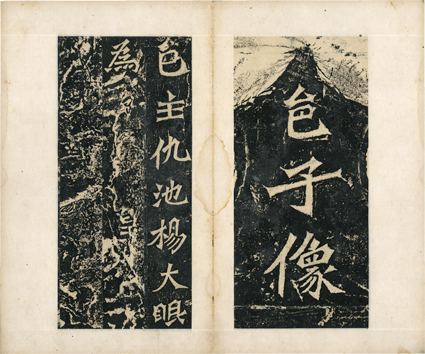 邑子像
邑主仇池楊大眼
為